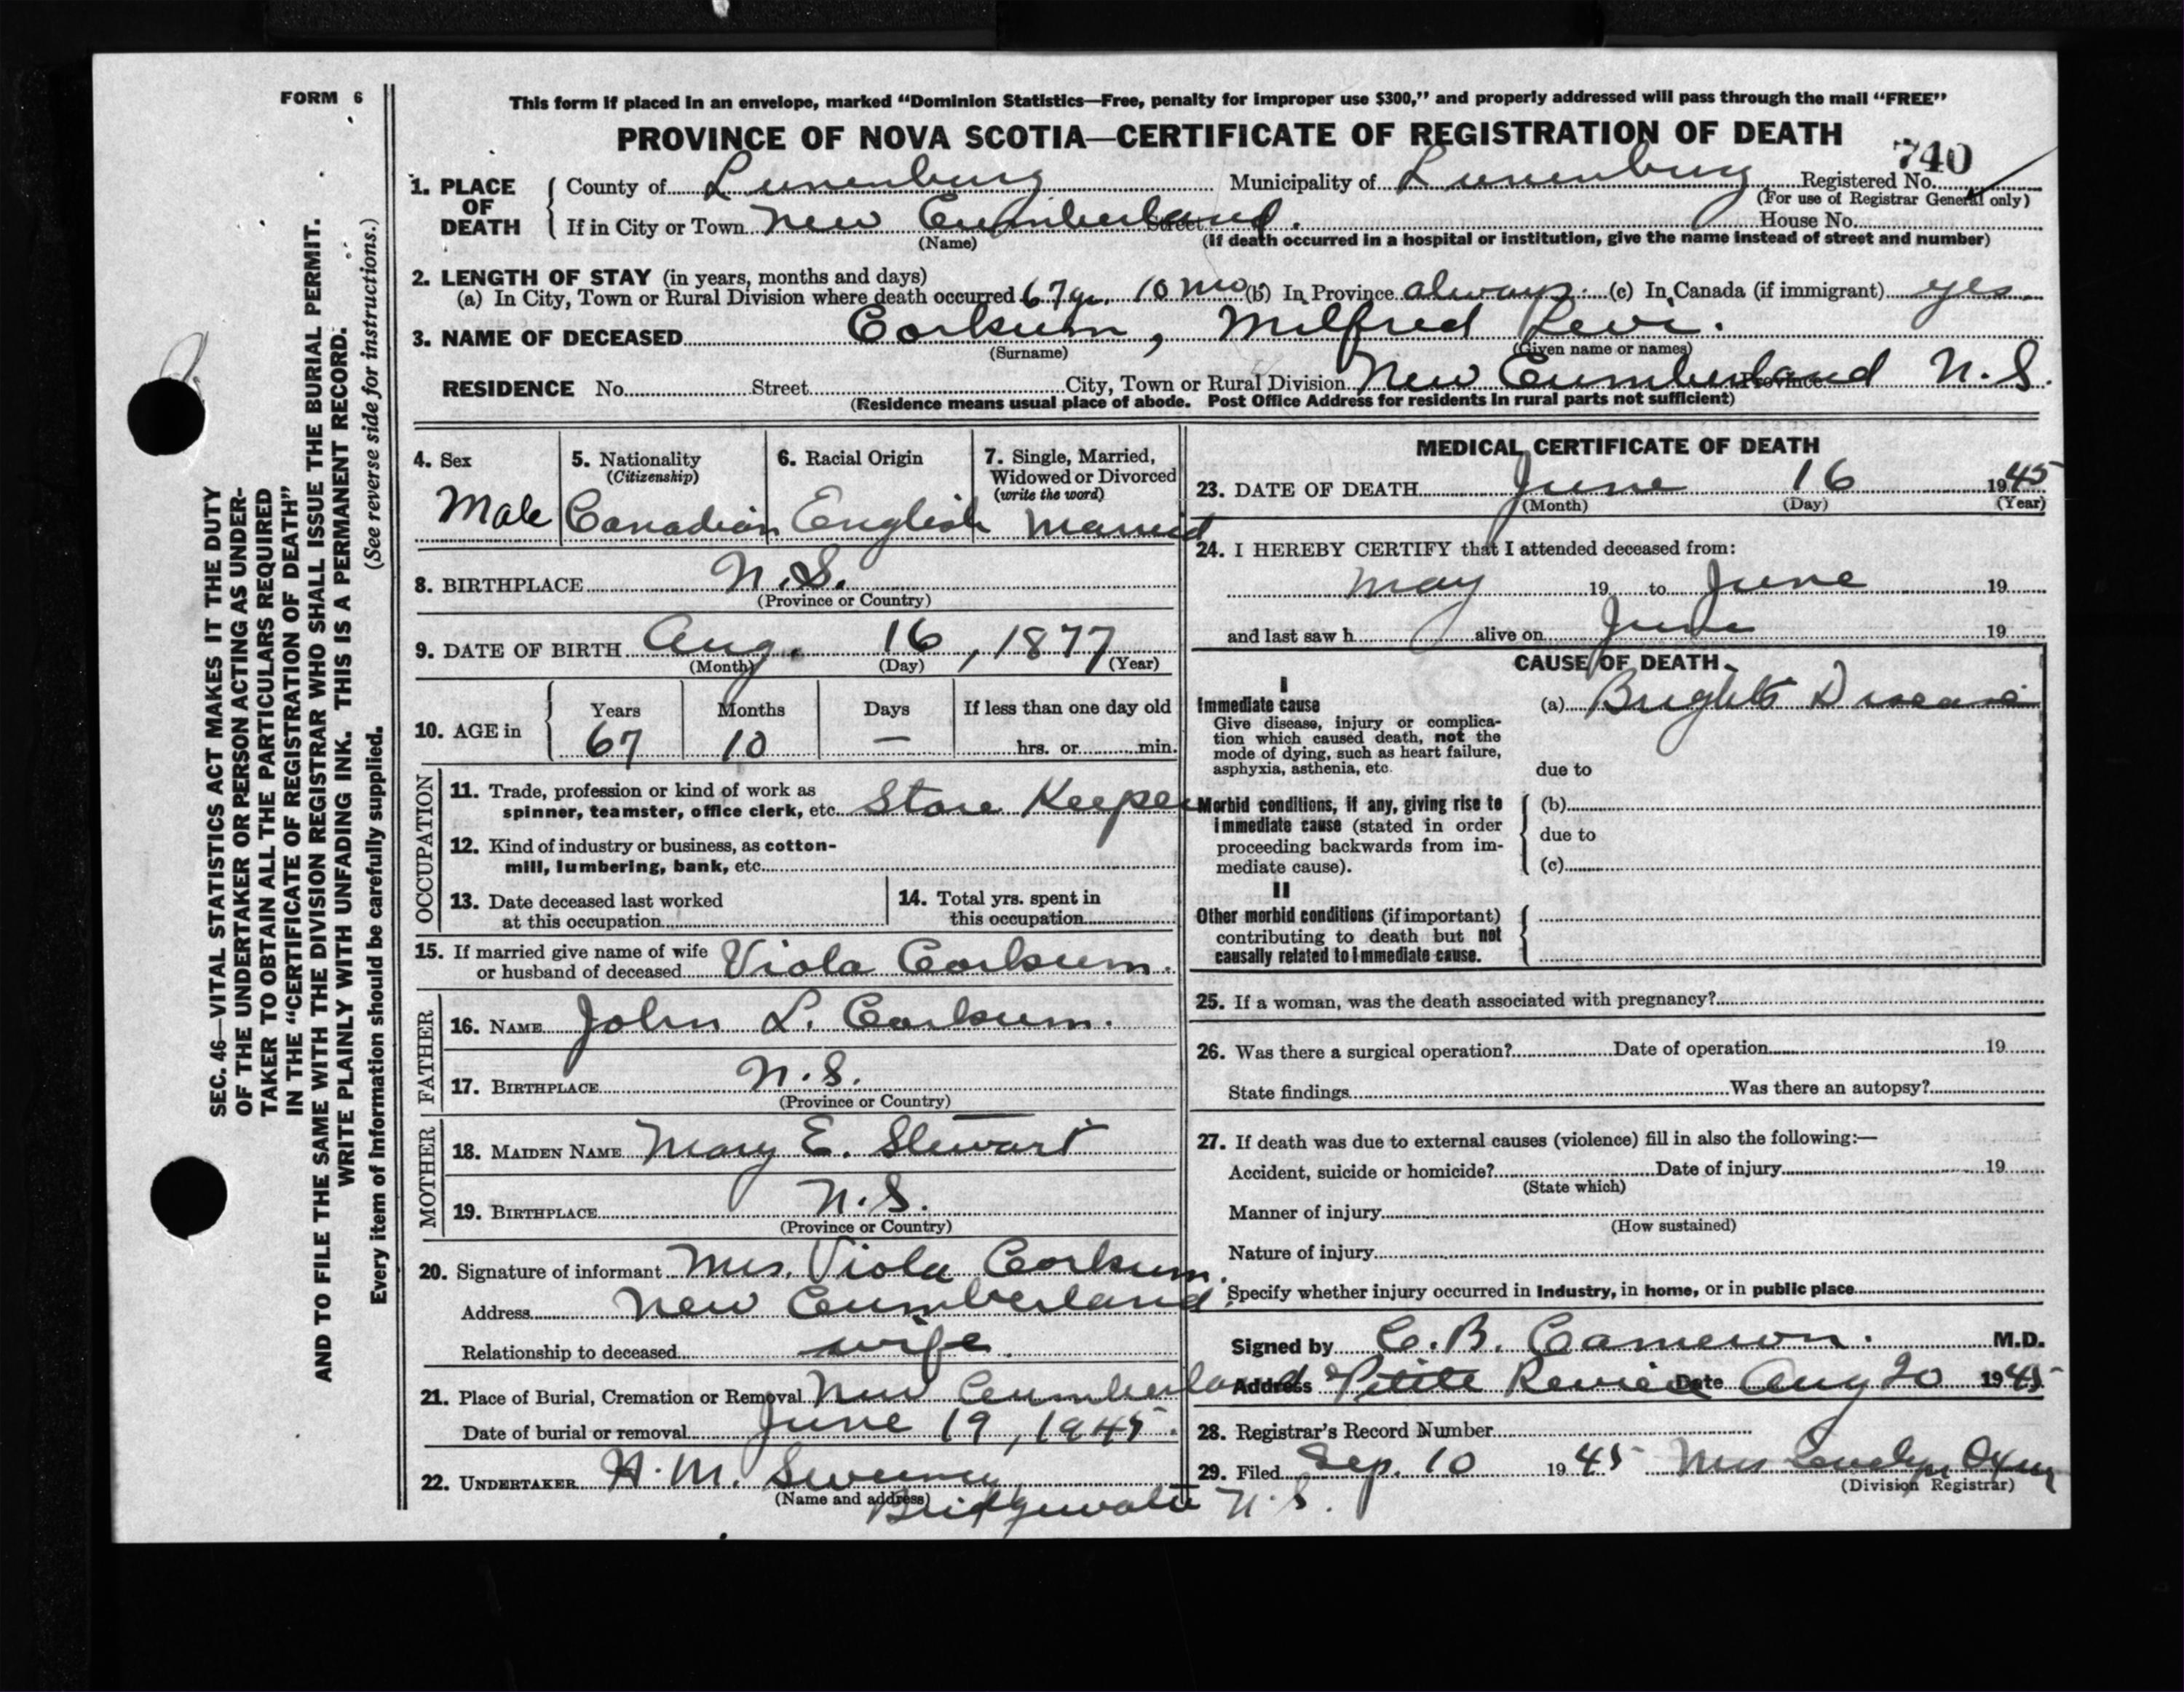 FORM 6
This form if placed in an envelope, marked “Dominion Statistics—Free, penalty for improper use $300,” and properly addressed will pass through the mail “FREE”
PROVINCE OF NOVA SCOTIA—CERTIFICATE OF REGISTRATION OF DEATH
740
1. PLACE OF DEATH County of Lunenburg Municipality of Lunenburg Registered No.
(For use of Registrar General only)
If in City or Town New Cumberland. Street House No.
(Name) (If death occurred in a hospital or institution, give the name instead of street and number)
2. LENGTH OF STAY (in years, months and days)
(a) In City, Town or Rural Division where death occurred 67 yr. 10 mo (b) In Province always. (c) In Canada (if immigrant) yes
3. NAME OF DECEASED Corkum, Milfred Levi.
(Surname) (Given name or names)
RESIDENCE No. Street City, Town or Rural Division New Cumberland Province N.S.
(Residence means usual place of abode. Post Office Address for residents in rural parts not sufficient)
4. Sex
Male
5. Nationality
(Citizenship)
Canadian
6. Racial Origin
English
7. Single, Married,
Widowed or Divorced
(write the word)
Married
8. BIRTHPLACE N.S.
(Province or Country)
9. DATE OF BIRTH Aug. 16, 1877
(Month) (Day) (Year)
10. AGE in
Years Months Days If less than one day old
67 10 — hrs. or min.
OCCUPATION
11. Trade, profession or kind of work as
spinner, teamster, office clerk, etc. Store Keeper
12. Kind of industry or business, as cotton-
mill, lumbering, bank, etc.
13. Date deceased last worked
at this occupation
14. Total yrs. spent in
this occupation
15. If married give name of wife
or husband of deceased Viola Corkum.
FATHER
16. NAME John L. Corkum.
17. BIRTHPLACE N.S.
(Province or Country)
MOTHER
18. MAIDEN NAME Mary E. Stewart
19. BIRTHPLACE N.S.
(Province or Country)
20. Signature of informant Mrs. Viola Corkum.
Address New Cumberland.
Relationship to deceased wife.
21. Place of Burial, Cremation or Removal New Cumberland
Date of burial or removal June 19, 1945.
22. UNDERTAKER H. M. Sweeney
(Name and address)
Bridgewater N.S.
MEDICAL CERTIFICATE OF DEATH
23. DATE OF DEATH June 16 1945
(Month) (Day) (Year)
24. I HEREBY CERTIFY that I attended deceased from:
May 19 to June 19
and last saw h alive on June 19
CAUSE OF DEATH
I
Immediate cause
Give disease, injury or complica-
tion which caused death, not the
mode of dying, such as heart failure,
asphyxia, asthenia, etc.
(a) Brights Disease
due to
Morbid conditions, if any, giving rise to
immediate cause (stated in order
proceeding backwards from im-
mediate cause).
(b)
due to
(c)
II
Other morbid conditions (if important)
contributing to death but not
causally related to immediate cause.
25. If a woman, was the death associated with pregnancy?
26. Was there a surgical operation? Date of operation 19
State findings Was there an autopsy?
27. If death was due to external causes (violence) fill in also the following:—
Accident, suicide or homicide? Date of injury 19
(State which)
Manner of injury
(How sustained)
Nature of injury
Specify whether injury occurred in industry, in home, or in public place
Signed by C. B. Cameron. M.D.
Address Petite Reviere Date Aug 20 1945
28. Registrar's Record Number
29. Filed Sep. 10 1945 Mrs
(Division Registrar)
SEC. 46—VITAL STATISTICS ACT MAKES IT THE DUTY
OF THE UNDERTAKER OR PERSON ACTING AS UNDER-
TAKER TO OBTAIN ALL THE PARTICULARS REQUIRED
IN THE “CERTIFICATE OF REGISTRATION OF DEATH”
AND TO FILE THE SAME WITH THE DIVISION REGISTRAR WHO SHALL ISSUE THE BURIAL PERMIT.
WRITE PLAINLY WITH UNFADING INK. THIS IS A PERMANENT RECORD.
Every item of information should be carefully supplied. (See reverse side for instructions.)